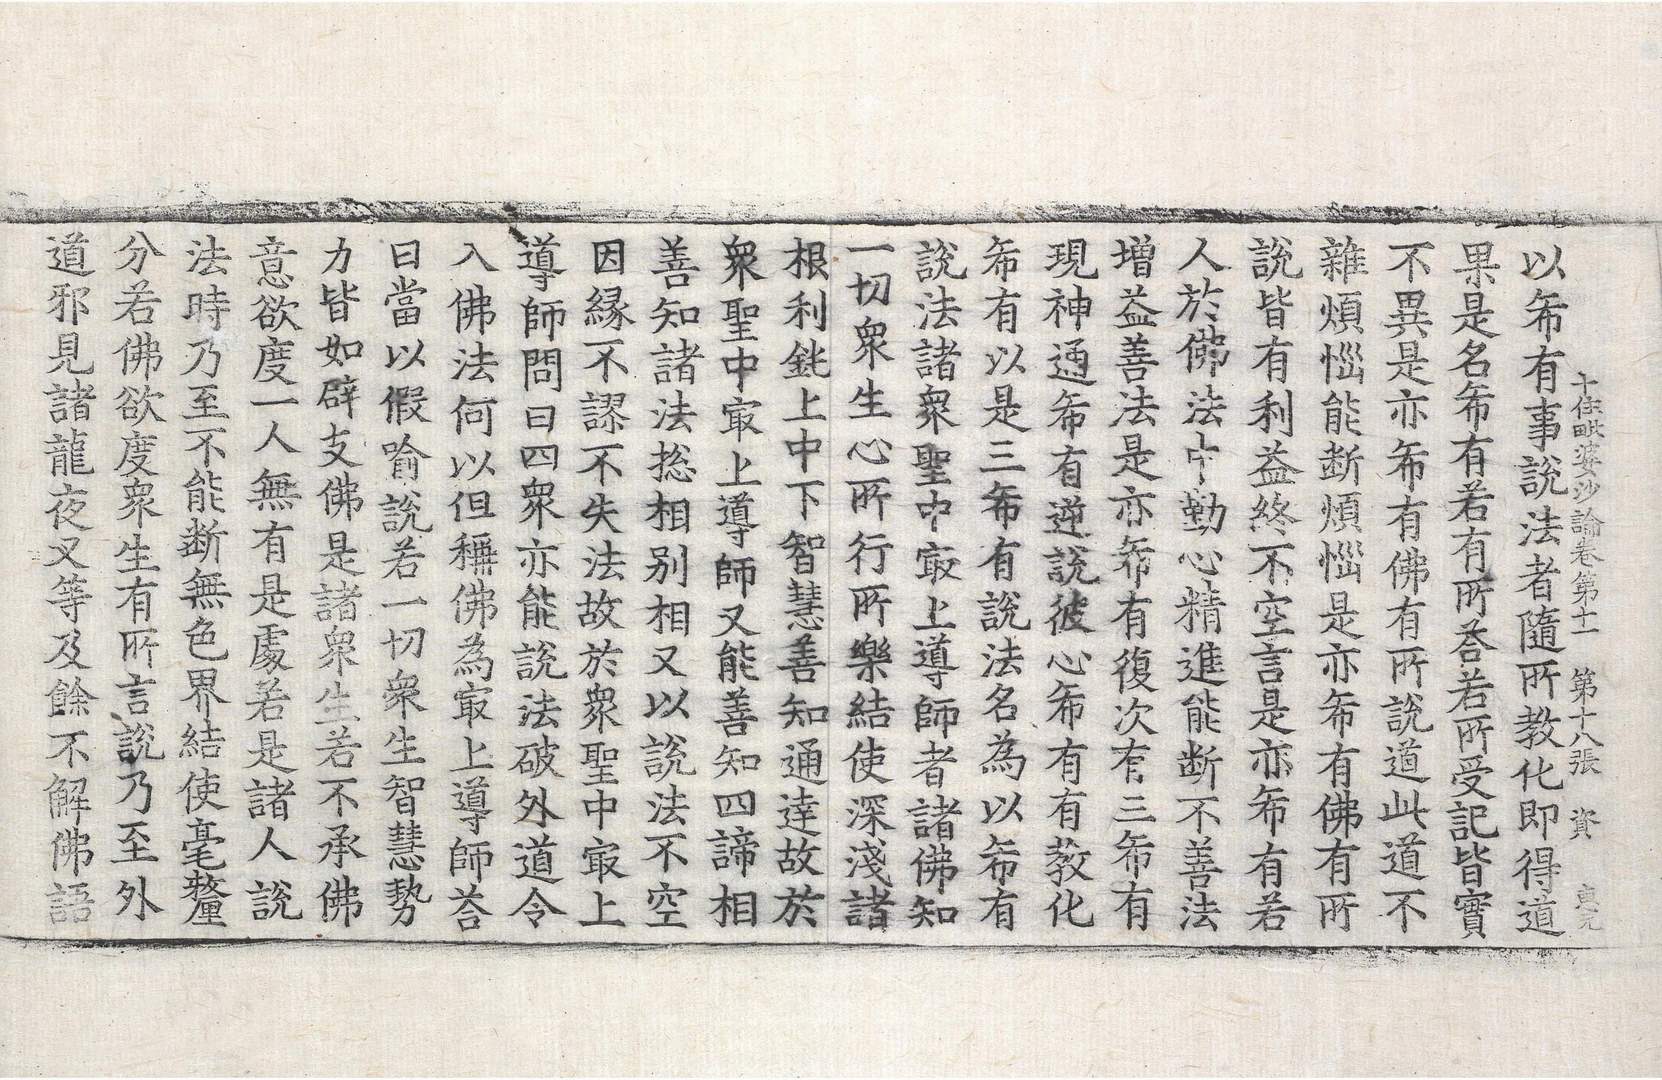 十住毗婆沙論卷第十一　第十八張　資　真元
以希有事說法者隨所教化即得道
果是名希有若有所荅若所受記皆實
不異是亦希有佛有所說道此道不
雜煩惱能断煩惱是亦希有佛有所
說皆有利益終不空言是亦希有若
人於佛法中勤心精進能断不善法
增益善法是亦希有復次有三希有
現神通希有逆說彼心希有有教化
希有以是三希有說法名為以希有
說法諸衆聖中㝡上導師者諸佛知
一切衆生心所行所樂結使深淺諸
根利鈍上中下智慧善知通達故於
衆聖中㝡上導師又能善知四諦相
善知諸法揔相別相又以說法不空
因緣不謬不失法故於衆聖中㝡上
導師問曰四衆亦能說法破外道令
入佛法何以但稱佛為㝡上導師荅
曰當以假喻說若一切衆生智慧勢
力皆如辟支佛是諸衆生若不承佛
意欲度一人無有是處若是諸人說
法時乃至不能断無色界結使毫釐
分若佛欲度衆生有所言說乃至外
道邪見諸龍夜叉等及餘不解佛語